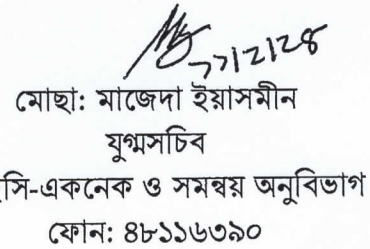 মোছা: মাজেদা ইয়াসমীন
যুগ্মসচিব
সি-একনেক ও সমন্বয় অনুবিভাগ
ফোন: ৪৮১১৬৩৯০